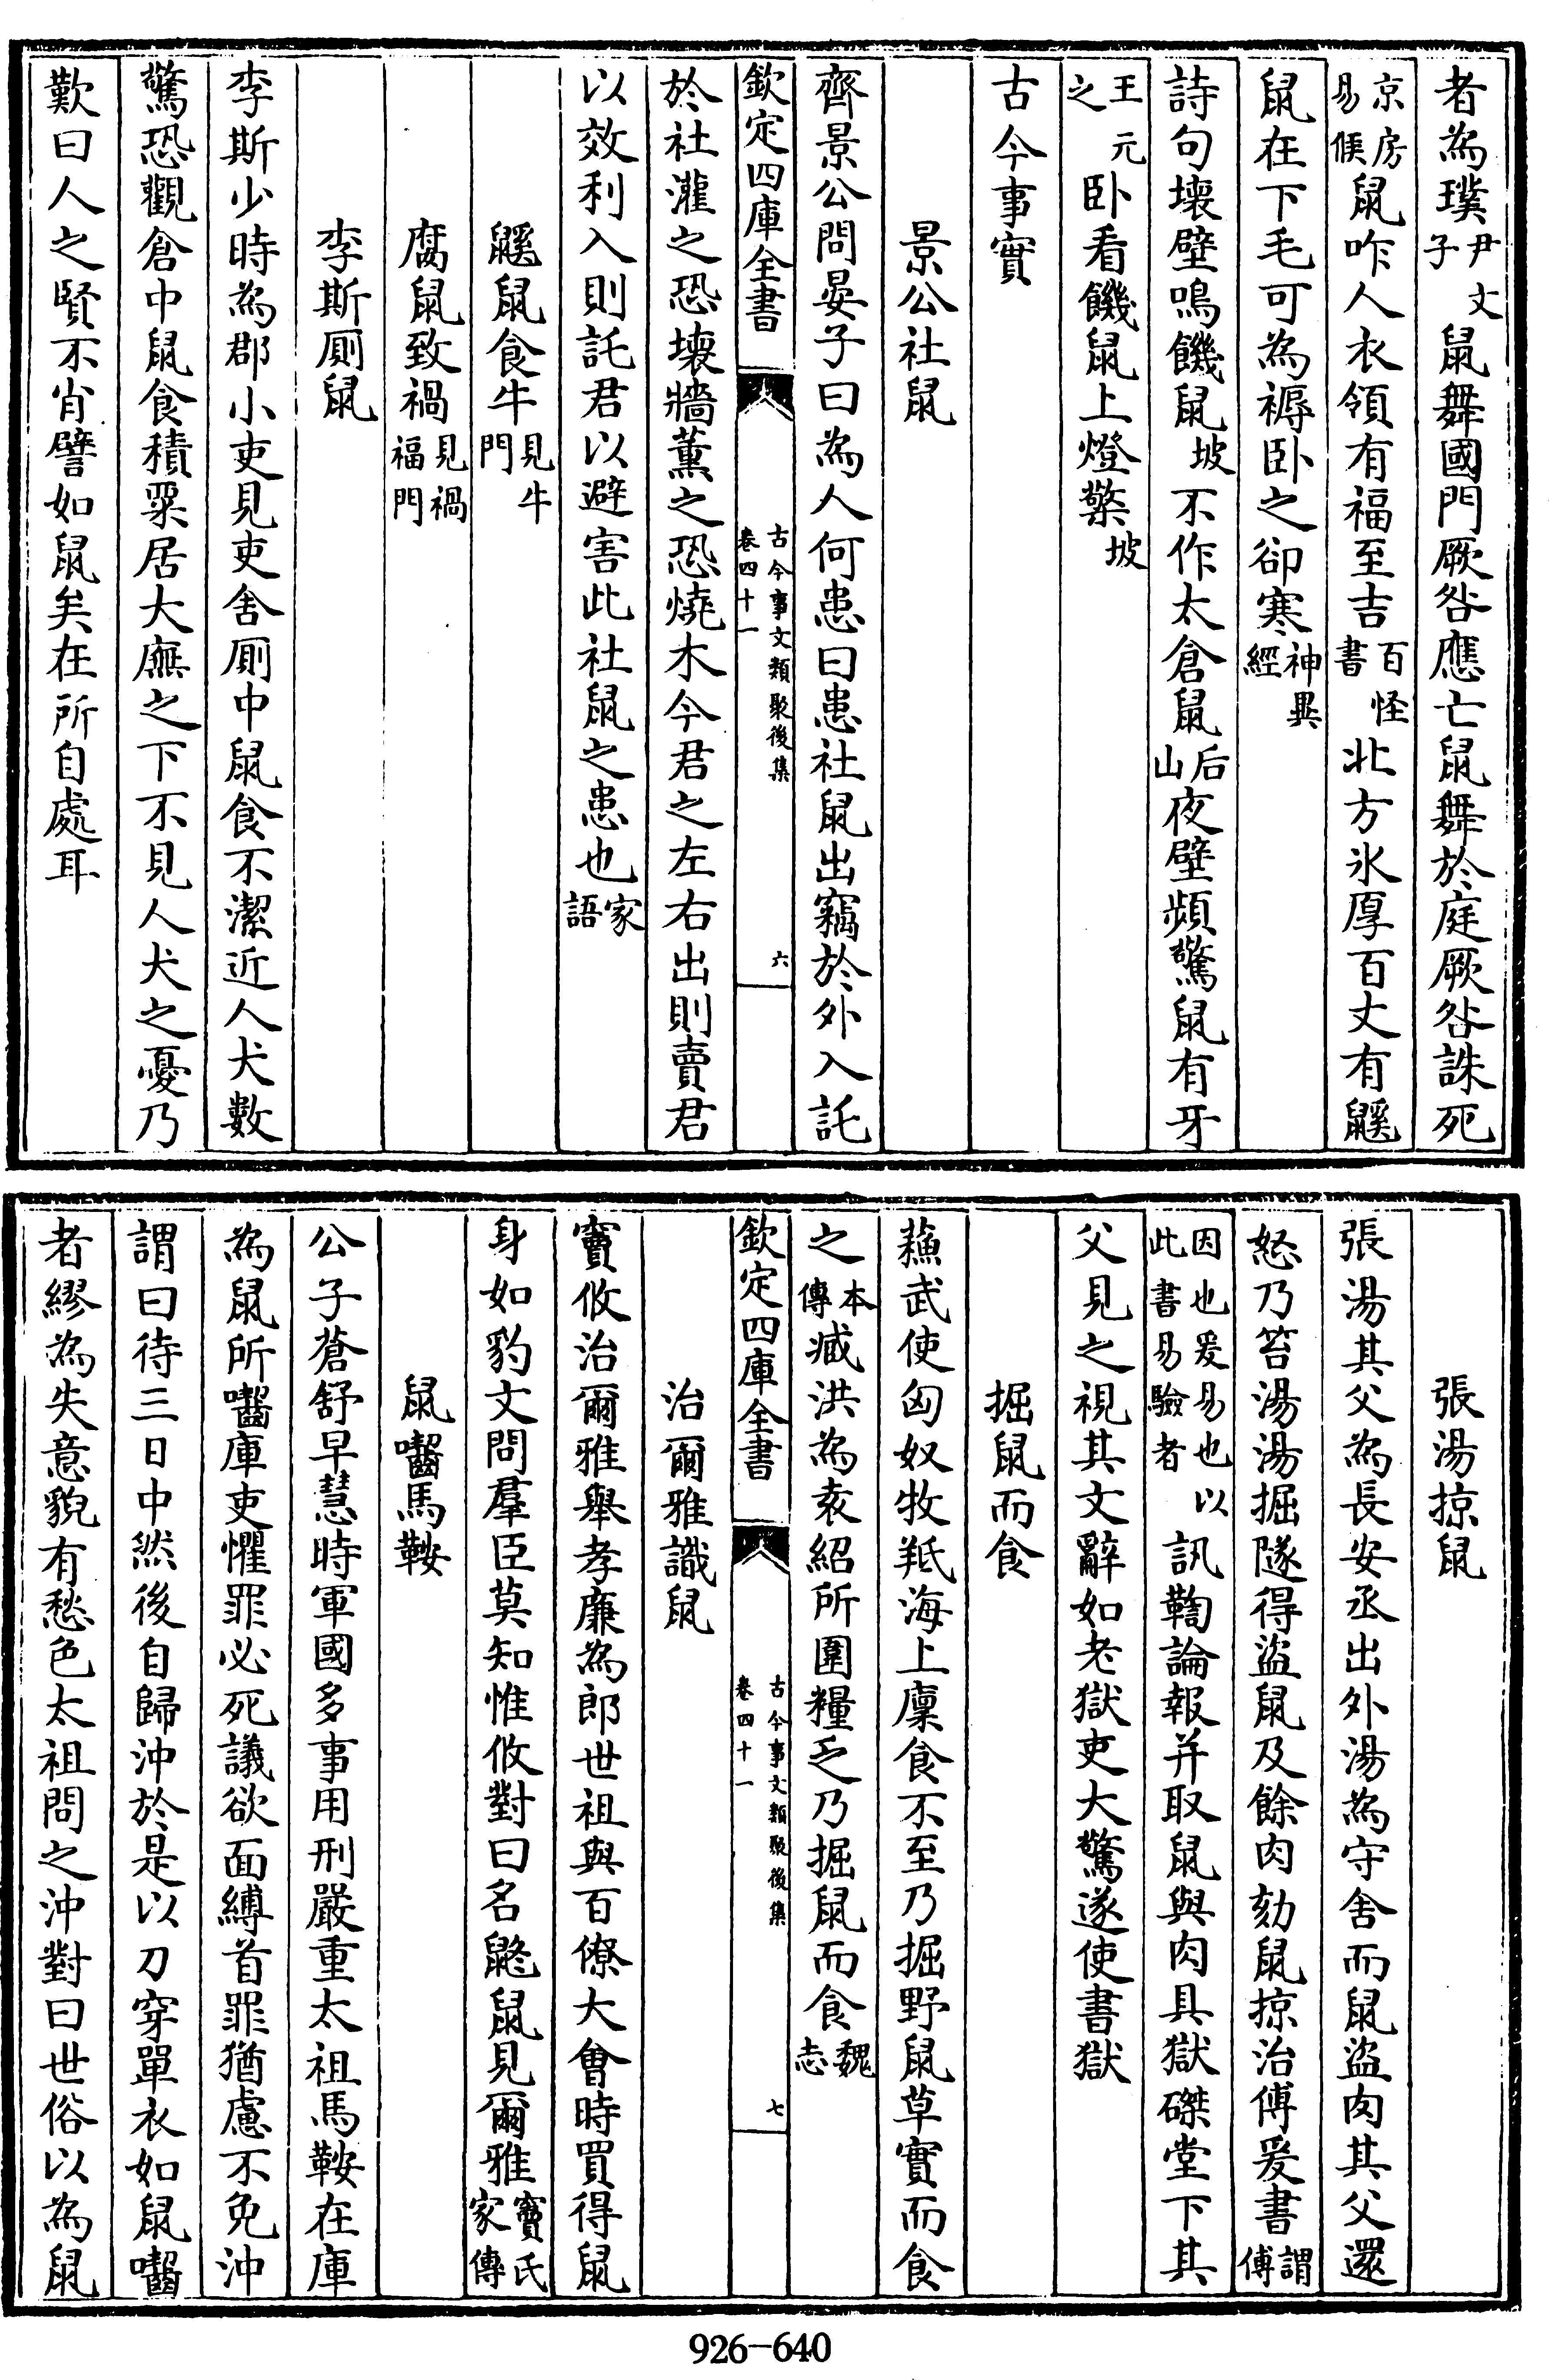 者為璞尹文子鼠舞國門厥咎應亡鼠舞於庭厥咎誅死
京房易候鼠咋人衣領有福至吉百怪書北方氷厚百丈有鼷
鼠在下毛可為褥卧之卻寒神異經
詩句壊壁鳴饑鼠坡不作太倉鼠后山夜壁頻驚鼠有牙
王元之卧看饑鼠上燈檠坡
古今事實
景公社鼠
齊景公問晏子曰為人何患曰患社鼠出竊於外入託
欽定四庫全書
古今事文類聚後集
卷四十一
六
於社灌之恐壊牆薰之恐燒木今君之左右出則賣君
以效利入則託君以避害此社鼠之患也家語
鼷鼠食牛見牛門
腐鼠致禍見禍福門
李斯厠鼠
李斯少時為郡小吏見吏舍厠中鼠食不潔近人犬數
驚恐觀倉中鼠食積粟居大廡之下不見人犬之憂乃
歎曰人之賢不肖譬如鼠矣在所自處耳
張湯掠鼠
張湯其父為長安丞出外湯為守舍而鼠盜肉其父還
怒乃笞湯湯掘隧得盜鼠及餘肉劾鼠掠治傅爰書謂傅
因也爰易也以此書易驗者訊鞫論報并取鼠與肉具獄磔堂下其
父見之視其文辭如老獄吏大驚遂使書獄
掘鼠而食
蘓武使匈奴牧羝海上廩食不至乃掘野鼠草實而食
之本傳臧洪為袁紹所圍糧乏乃掘鼠而食魏志
欽定四庫全書
古今事文類聚後集
卷四十一
七
治爾雅識鼠
竇攸治爾雅舉孝廉為郎世祖與百僚大會時買得鼠
身如豹文問羣臣莫知惟攸對曰名鼮鼠見爾雅竇氏家傳
鼠囓馬鞍
公子蒼舒早慧時軍國多事用刑嚴重太祖馬鞍在庫
為鼠所囓庫吏懼罪必死議欲面縛首罪猶慮不免沖
謂曰待三日中然後自歸沖於是以刀穿單衣如鼠囓
者繆為失意貌有愁色太祖問之沖對曰世俗以為鼠
926-640